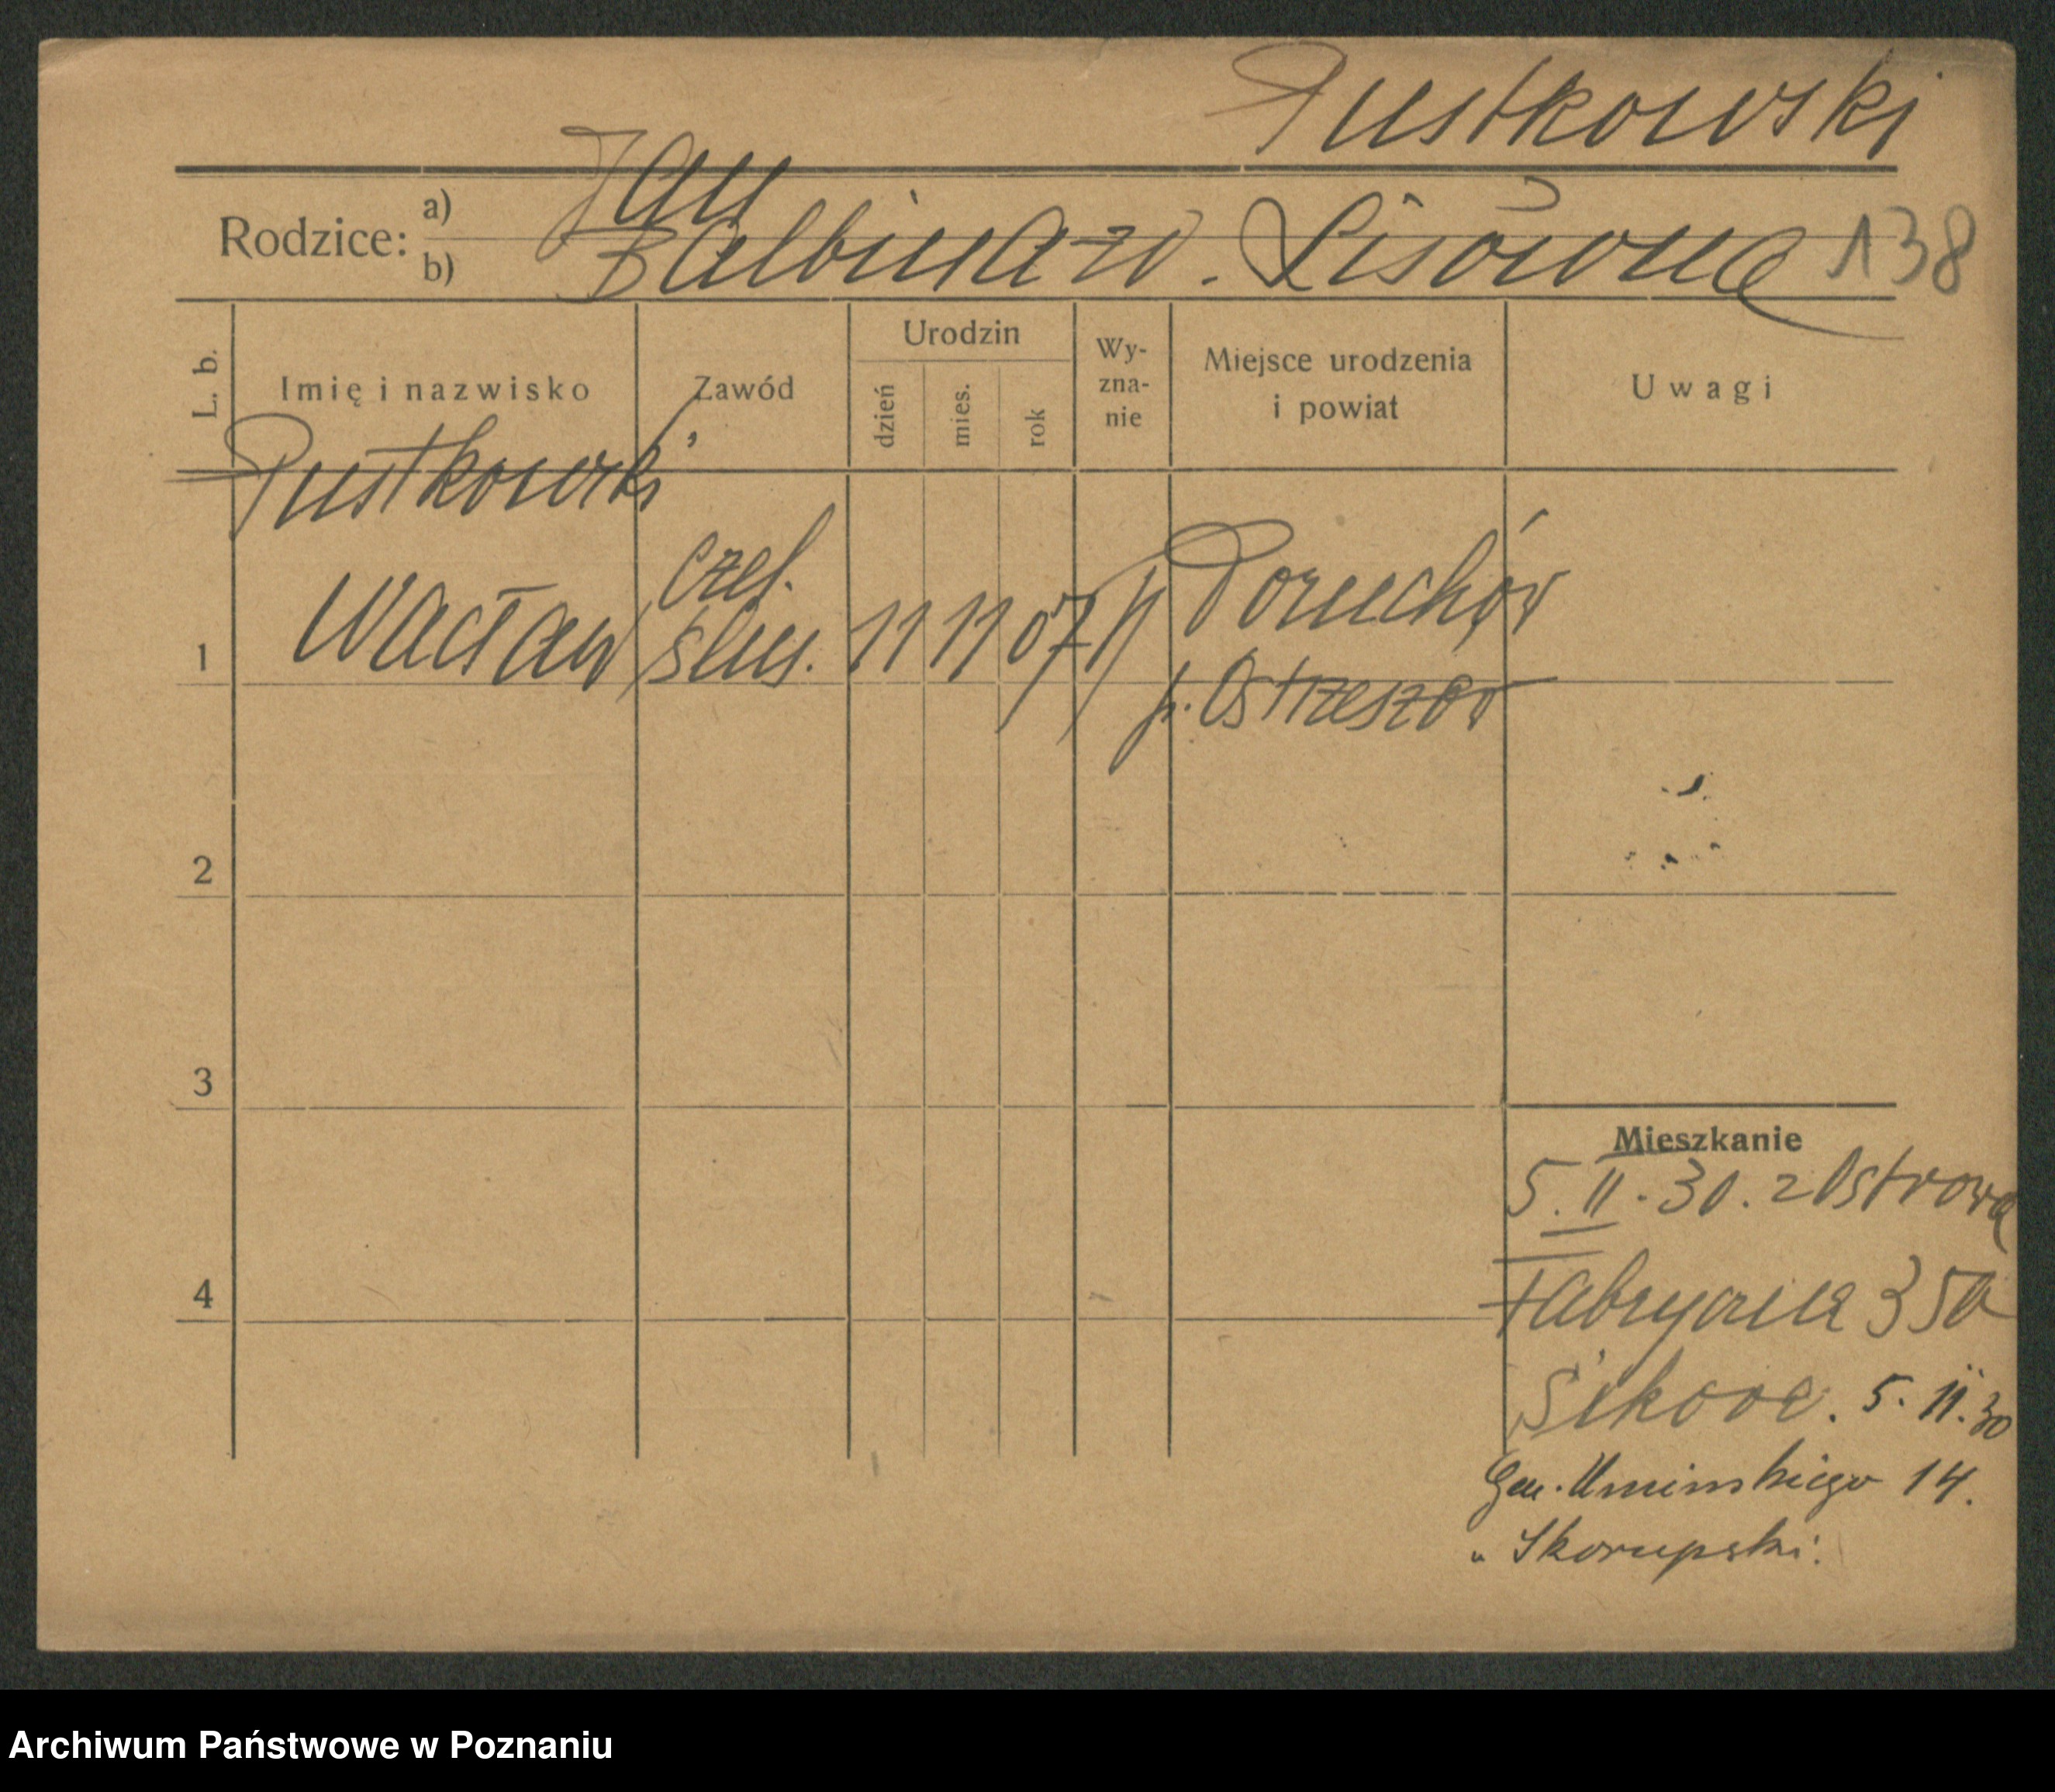 Pustkowski
Rodzice: a) Jan
b) Balbina z d. Lisówna 138
L. b. Imię i nazwisko Zawód Urodzin dzień mies. rok Wy-zna-nie Miejsce urodzenia i powiat Uwagi
Pustkowski
1 Wacław czel. ślus. 11 11 07 Doruchów
p. Ostrzeszów
2
3
Mieszkanie
5.II.30. z Ostrowa
4 Fabryczna 35a
5.11.30
Gen. Umińskiego 14.
" Skorupski.
Archiwum Państwowe w Poznaniu